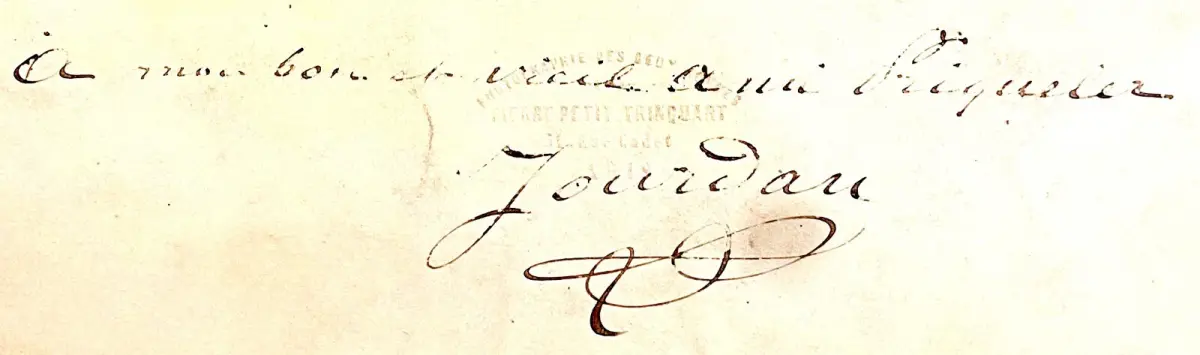 à mon bon et vieil ami Priqueler
PHOTOGRAPHIE DES DEUX MONDES
PIERRE PETIT TRINQUART
31. Rue Cadet
PARIS
Jourdan